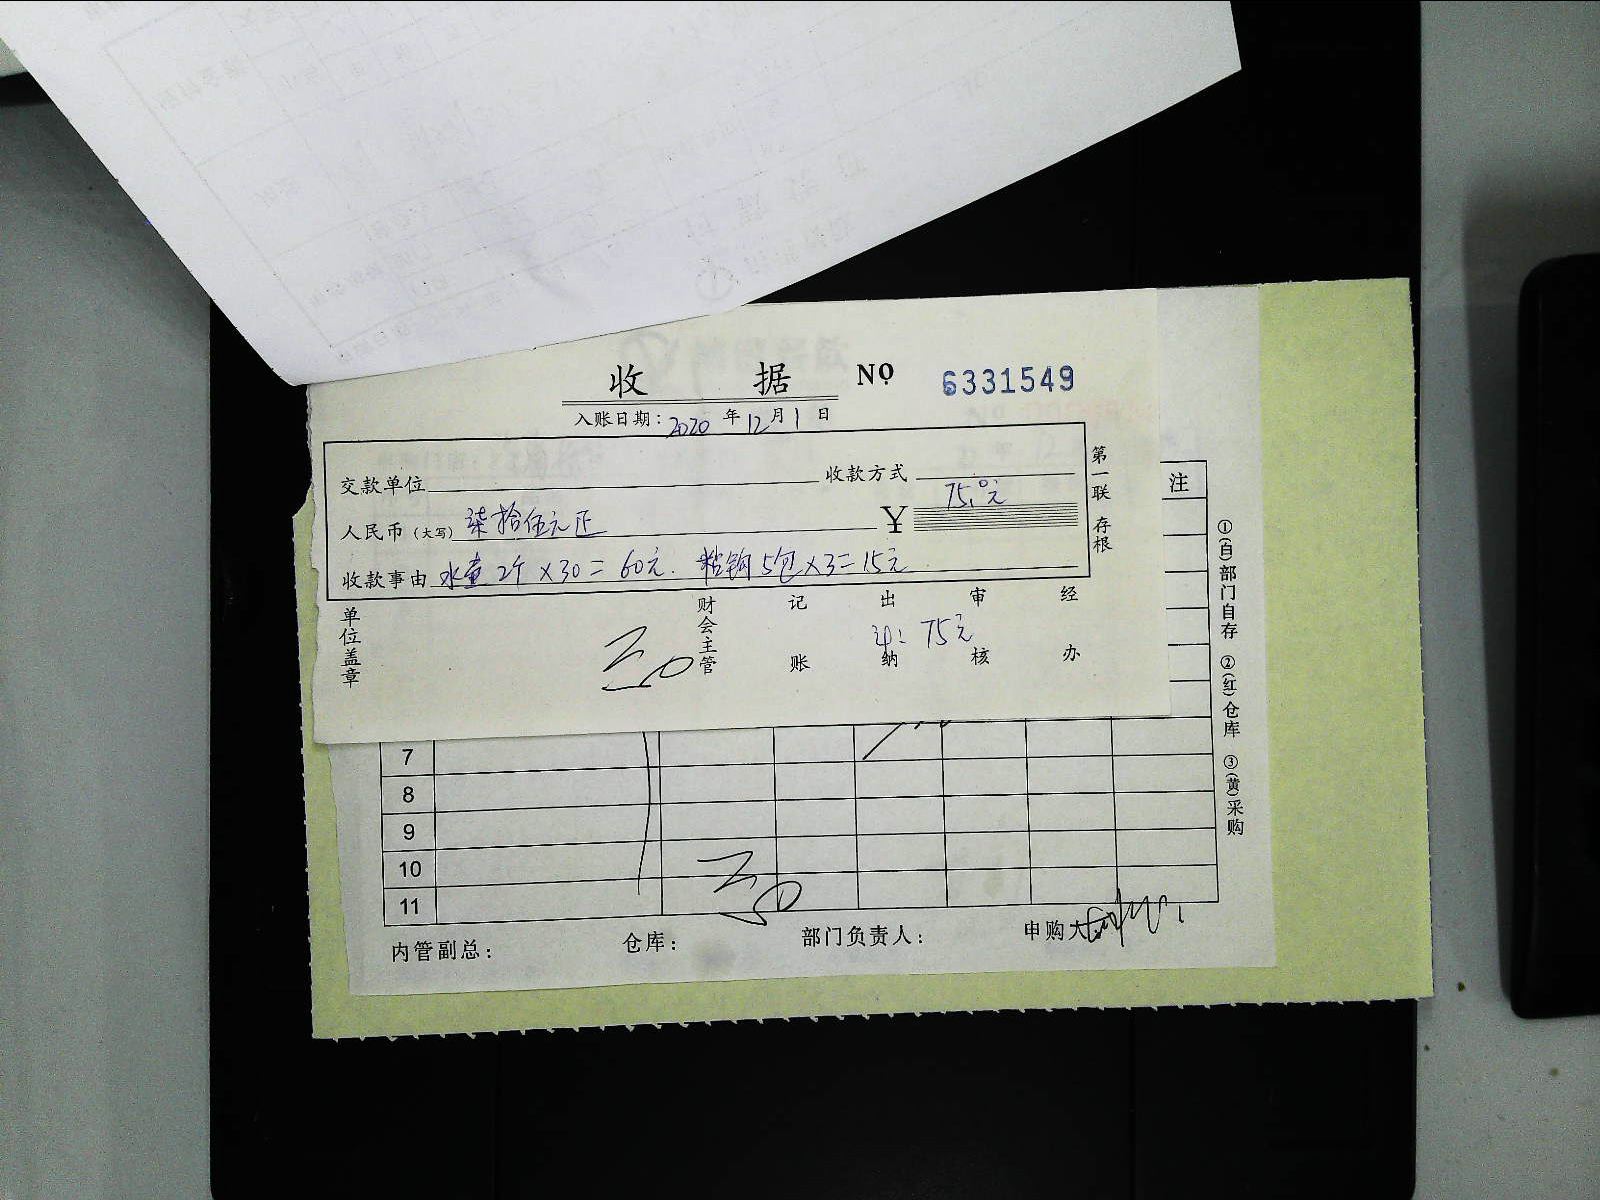 收 据 No 6331549
入账日期：2020年12月1日
交款单位 收款方式
人民币（大写）柒拾伍元正 ¥ 75.0元
收款事由 水壶2个×30=60元. 粘钩5包×3=15元
第一联 存根
单位盖章 财会主管 记账 出纳 审核 经办
75元
注
7
8
9
10
11
内管副总： 仓库： 部门负责人： 申购
①(白)部门自存 ②(红)仓库 ③(黄)采购